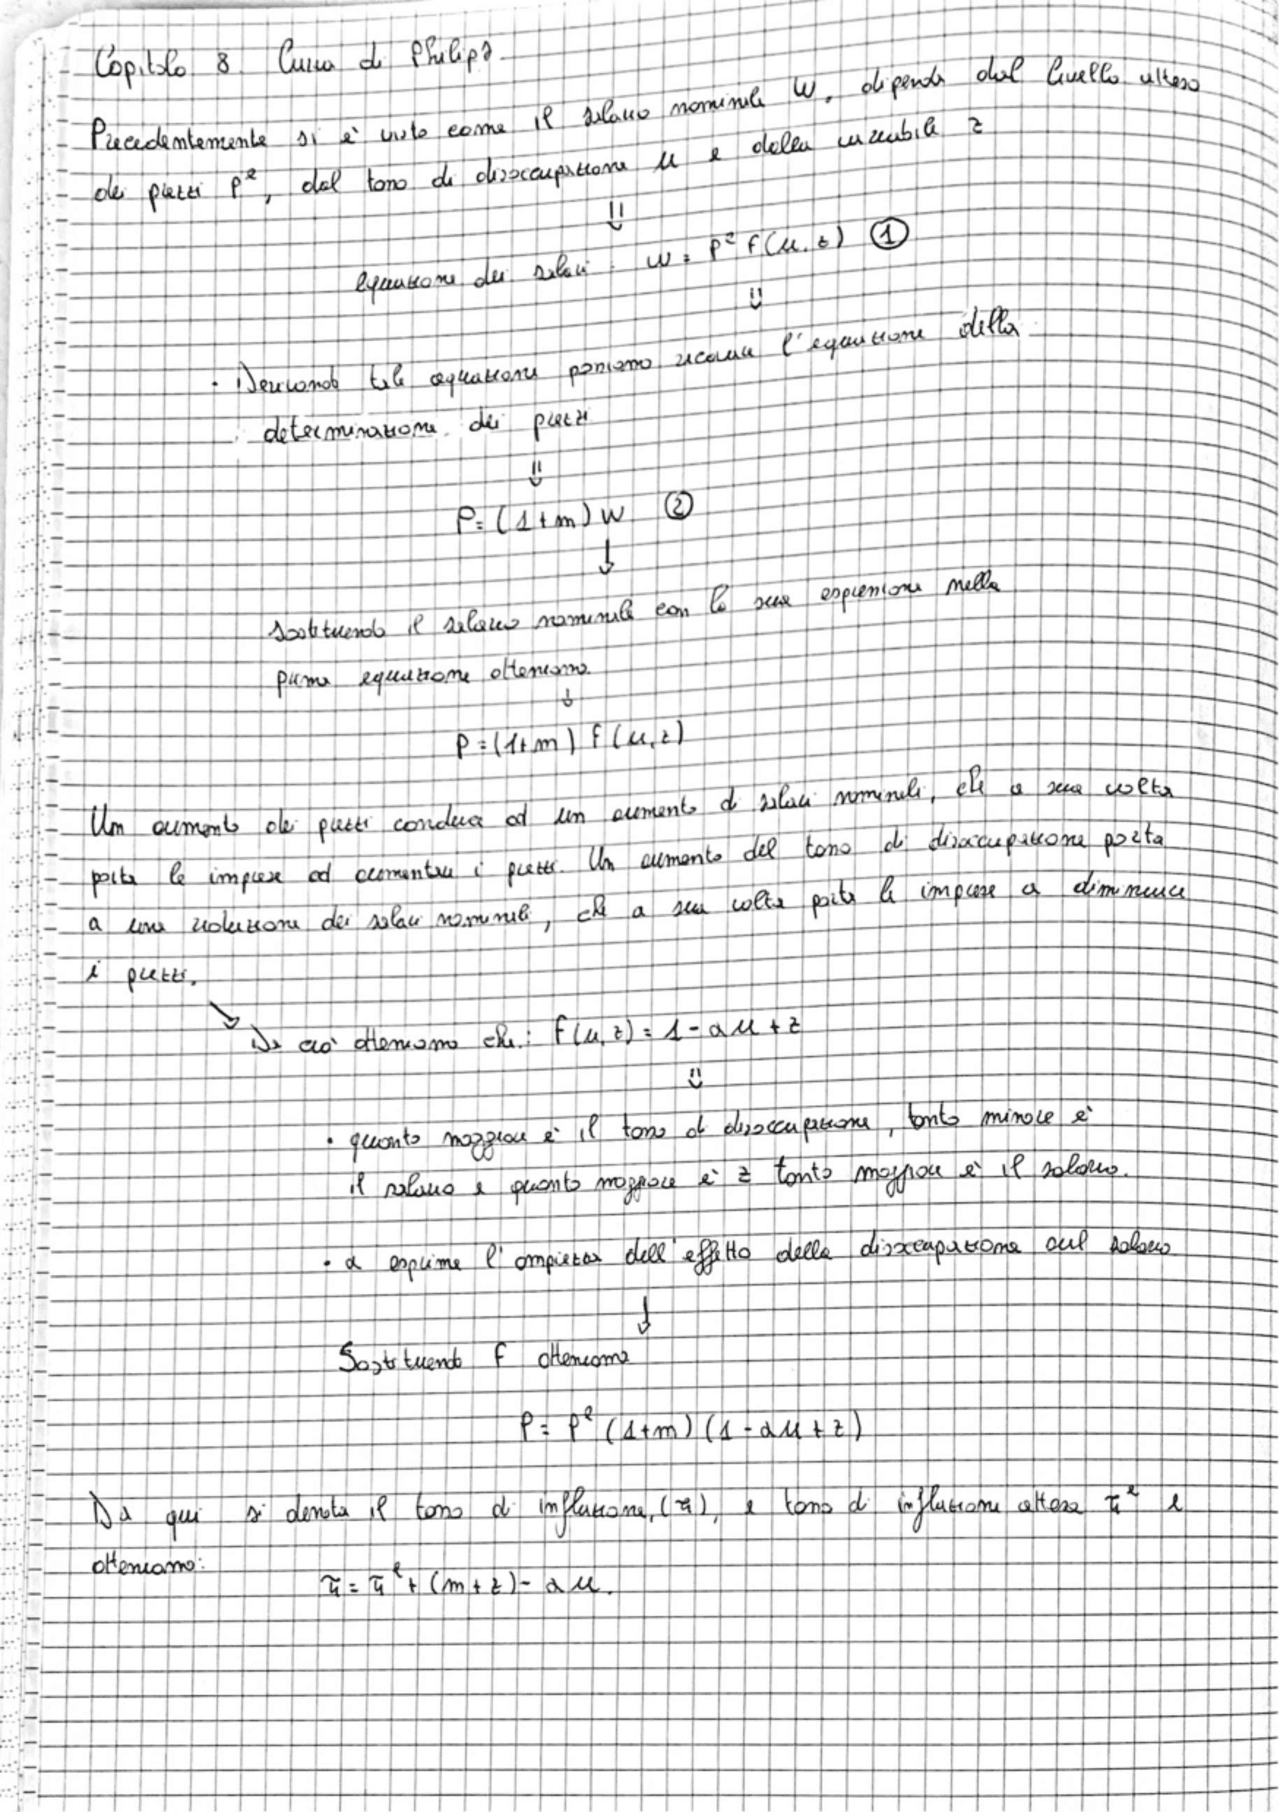 Capitolo 8. Curva di Philips
Precedentemente si è visto come il salario nominale W, dipenda dal livello atteso
dei prezzi P^e, dal tasso di disoccupazione u e dalla variabile z
⇓
equazione dei salari: W = P^e F(u, z) ①
⇓
• Derivando tale equazione possiamo ricavare l'equazione della
determinazione dei prezzi
⇓
P = (1+m) W ②
↓
Sostituendo il salario nominale con la sua espressione nella
prima equazione otteniamo
↓
P = (1+m) F(u, z)
Un aumento dei prezzi conduce ad un aumento di salari nominali, che a sua volta
porta le imprese ad aumentare i prezzi. Un aumento del tasso di disoccupazione porta
a una riduzione dei salari nominali, che a sua volta porta le imprese a diminuire
i prezzi.
↘ Da ciò otteniamo che: F(u, z) = 1 - αu + z
⇓
• quanto maggiore è il tasso di disoccupazione, tanto minore è
il salario e quanto maggiore è z tanto maggiore è il salario.
• α esprime l'ampiezza dell'effetto della disoccupazione sul salario
↓
Sostituendo F otteniamo
P = P^e (1+m) (1 - αu + z)
Da qui si denota il tasso di inflazione, (π), e tasso di inflazione attesa π^e e
otteniamo:
π = π^e + (m + z) - αu.